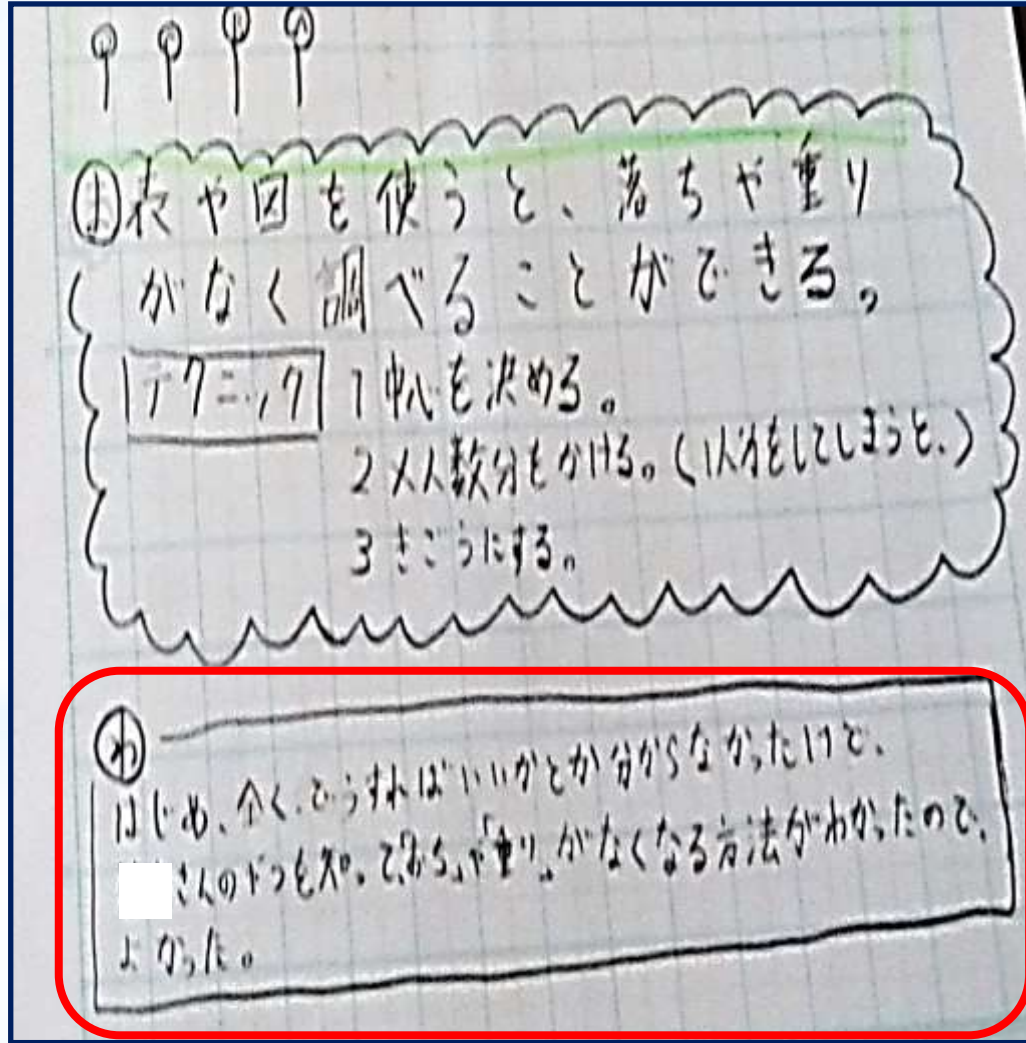 ま表や図を使うと、落ちや重り
がなく調べることができる。
テクニック 1中心を決める。
2×人数分をかける。(1人分をしてしまうと、)
3きごうにする。
わ
はじめ、全く、どうすればいいかとか分からなかったけど、
さんのドつを知って、「おち」や「重り」がなくなる方法がわかったので、
よかった。